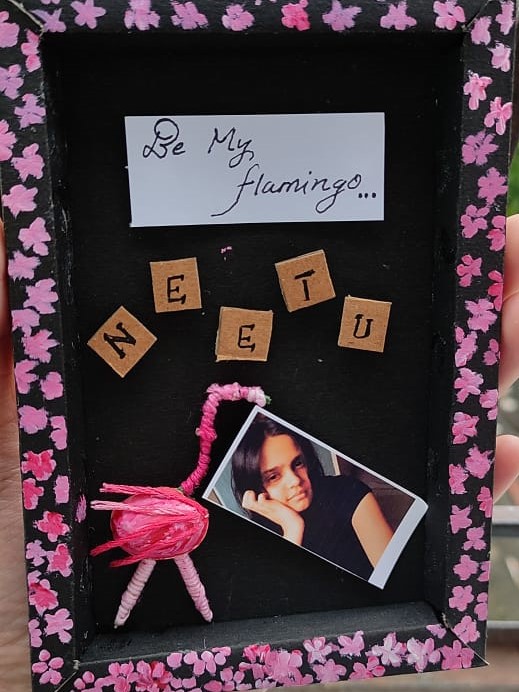 Be My
flamingo...
NEETU